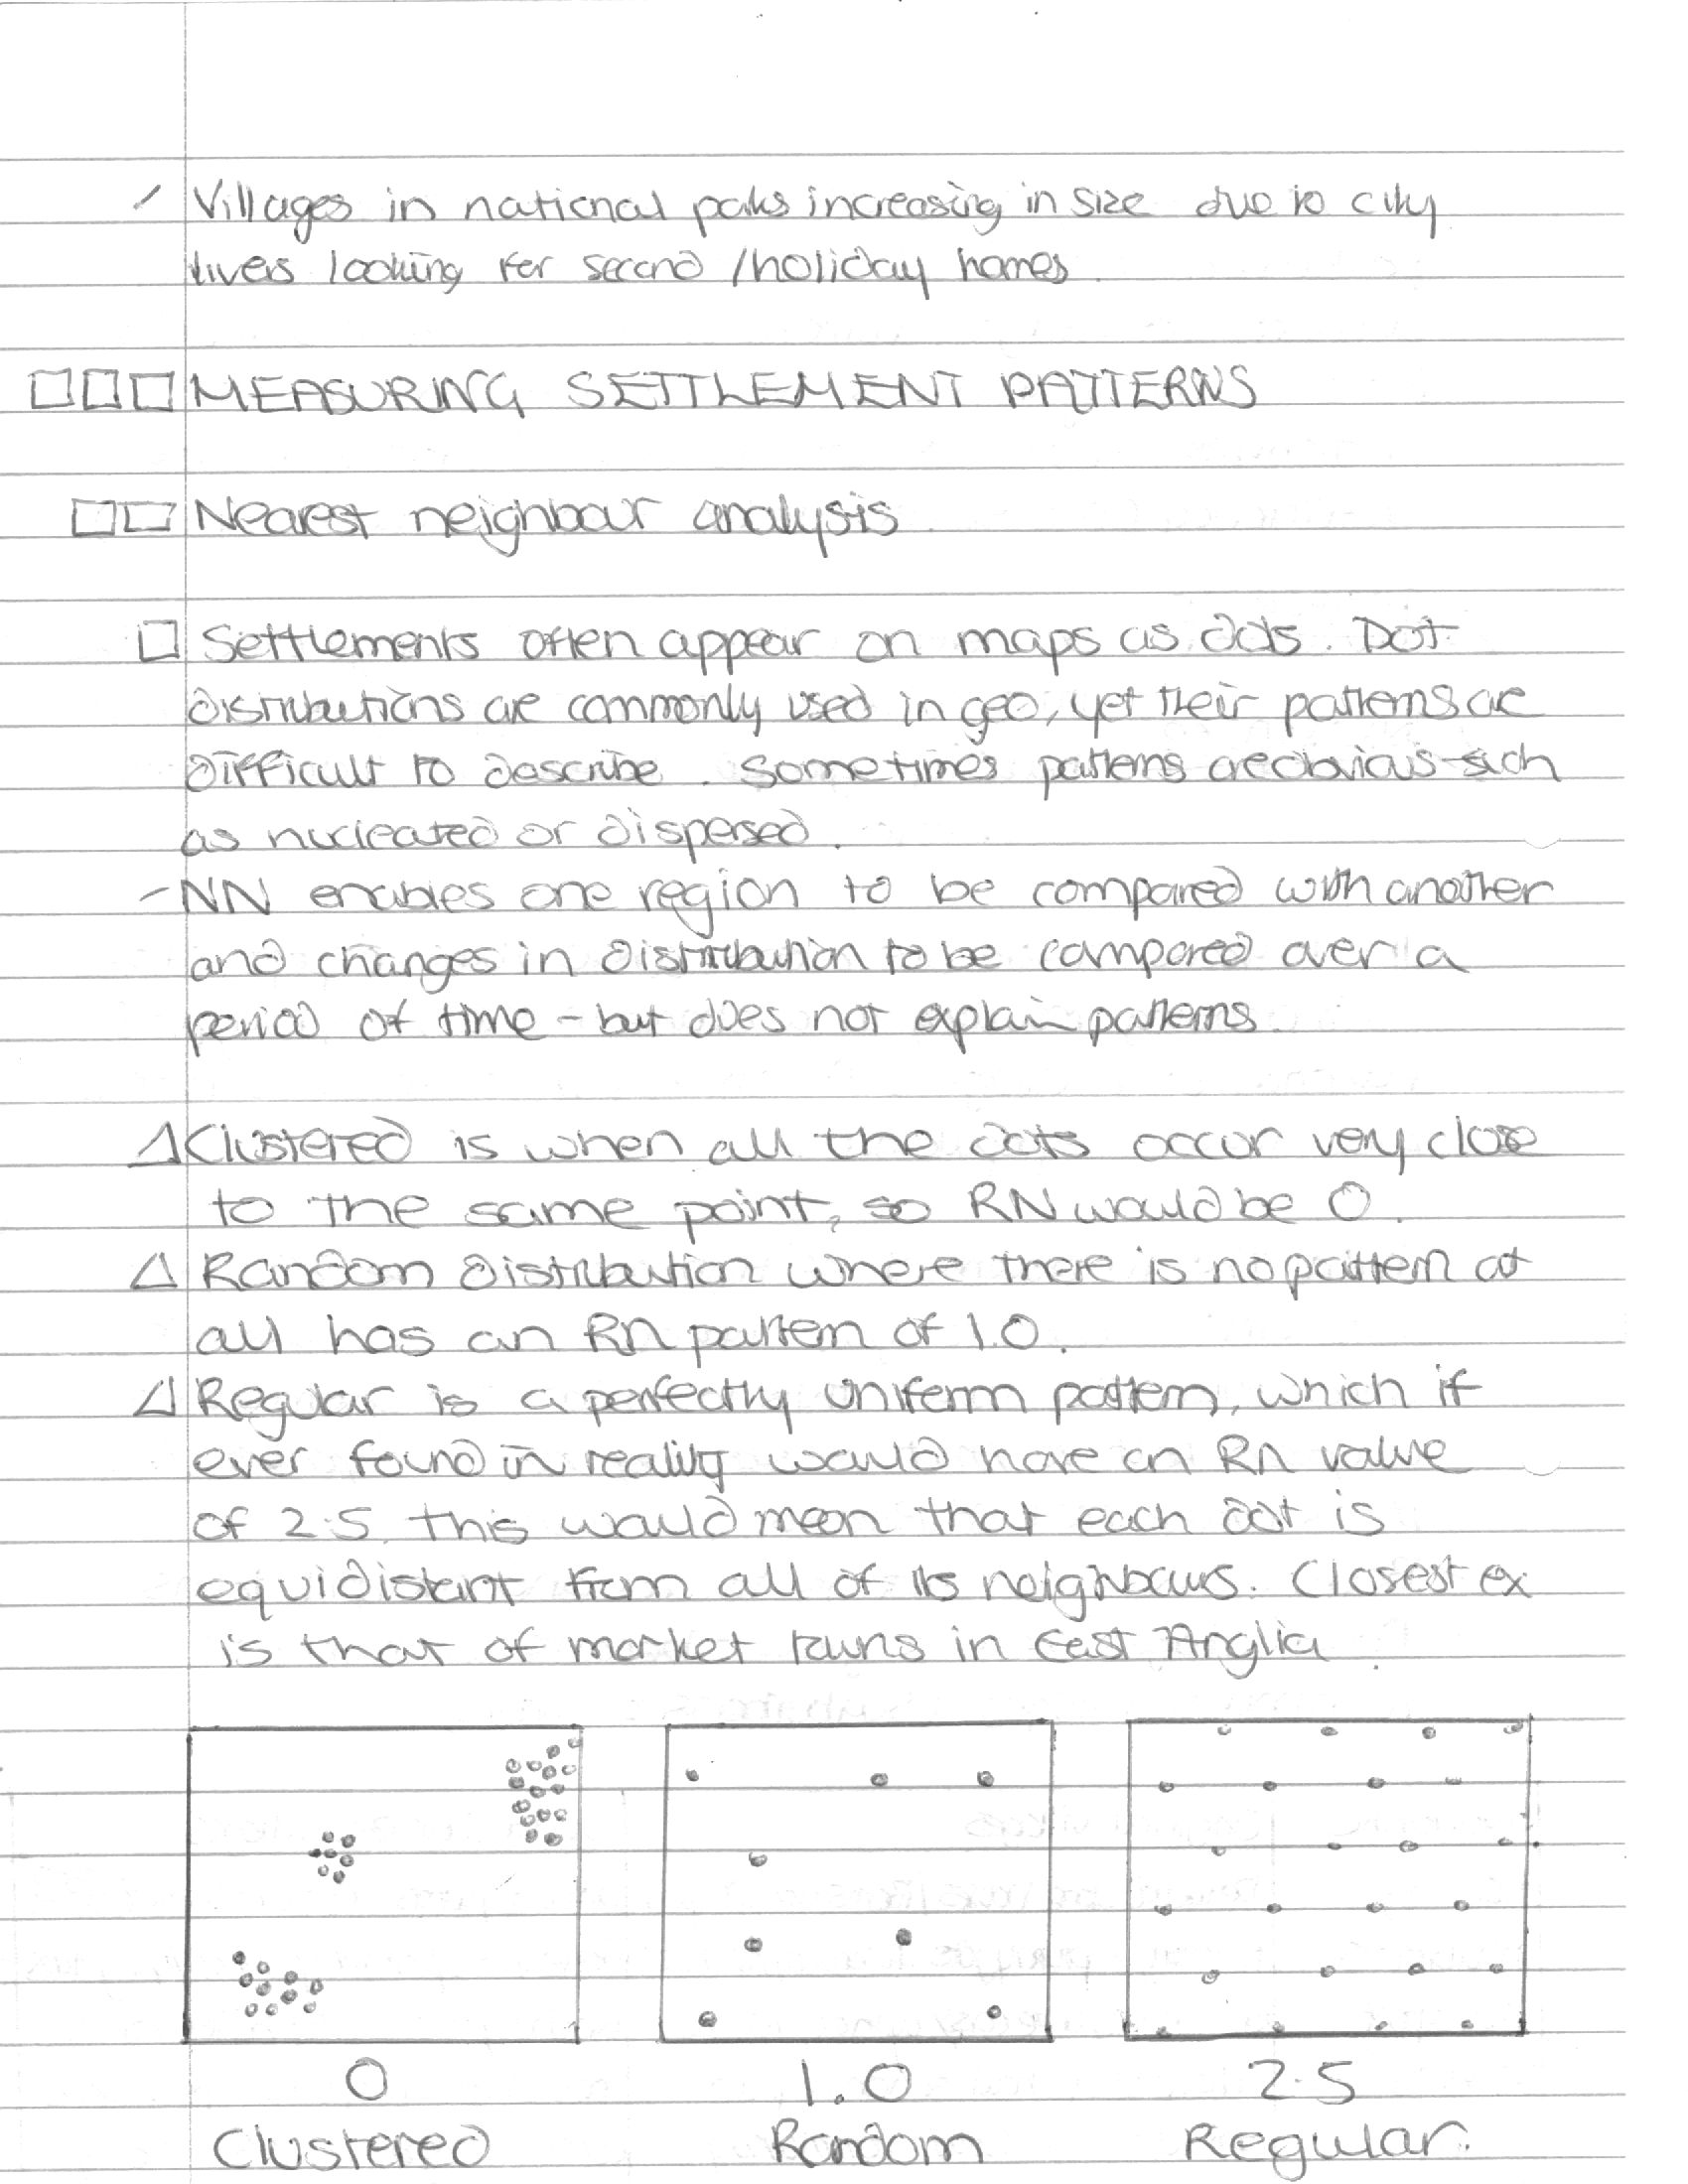 Villages in national parks increasing in size due to city
livers looking for second /holiday homes.
MEASURING SETTLEMENT PATTERNS
Nearest neighbour analysis.
Settlements often appear on maps as dots. Dot
distributions are commonly used in geo, yet their patterns are
difficult to describe. Sometimes patterns are obvious such
as nucleated or dispersed.
- NN enables one region to be compared with another
and changes in distribution to be compared over a
period of time - but does not explain patterns.
△ Clustered is when all the dots occur very close
to the same point, so RN would be 0.
△ Random distribution where there is no pattern at
all has an Rn pattern of 1.0.
△ Regular is a perfectly uniform pattern, which if
ever found in reality would have an Rn value
of 2.5. this would mean that each dot is
equidistant from all of its neighbours. Closest ex
is that of market towns in East Anglia.
0 1.0 2.5
Clustered Random Regular.